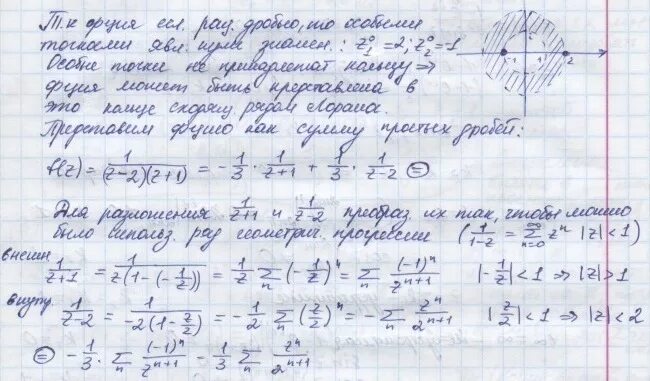 Т.к функция есть. рац. дробью, то особыми
точками явл. нули знамен.: z₁⁰=2; z₂⁰=1
Особые точки не принадлежат кольцу ⇒
функция может быть представлена в
это кольце сходящ. рядом Лорана.
Представим функцию как сумму простых дробей:
f(z) = 1/((z-2)(z+1)) = -1/3 · 1/(z+1) + 1/3 · 1/(z-2) ⊜
Для разложения 1/(z+1) и 1/(z-2) преобраз. их так, чтобы можно
было использ. ряд геометрич. прогрессии (1/(1-z) = ∑_{n=0}^∞ zⁿ |z|<1)
внешн. 1/(z+1) = 1/(z(1-(-1/z))) = 1/z ∑_n (-1/z)ⁿ = ∑_n (-1)ⁿ/z^{n+1} |-1/z|<1 ⇒ |z|>1
внутр. 1/(z-2) = 1/(-2(1-z/2)) = -1/2 ∑_n (z/2)ⁿ = -∑_n zⁿ/2^{n+1} |z/2|<1 ⇒ |z|<2
⊜ -1/3 · ∑_n (-1)ⁿ/z^{n+1} - 1/3 ∑_n zⁿ/2^{n+1}
-1
2